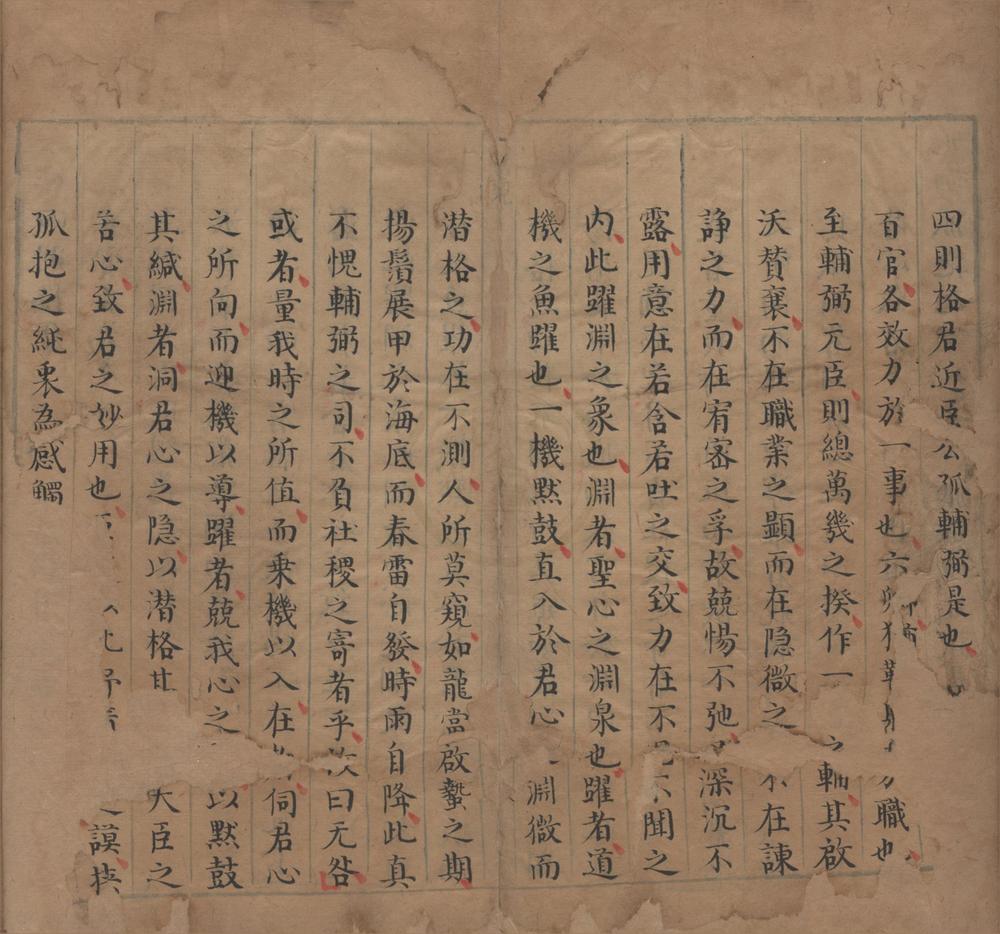 四則格君近臣公孤輔弼是也
百官各效力於一事也六職也
至輔弼元臣則總萬幾之揆作一軸其啟
沃贊襄不在職業之顯而在隱微之不在諫
諍之力而在宥密之孚故兢惕不弛深沉不
露用意在若含若吐之交致力在不不聞之
内此躍淵之象也淵者聖心之淵泉也躍者道
機之魚躍也一機黙鼓直入於君心淵微而
潜格之功在不測人所莫窺如龍當啟蟄之期
揚鬚展甲於海底而春雷自發時雨自降此真
不愧輔弼之司不負社稷之寄者乎故曰无咎
或者量我時之所值而乗機以入在伺君心
之所向而迎機以導躍者兢我心之以黙鼓
其緘淵者洞君心之隐以潜格大臣之
苦心致君之妙用也謨挟
孤抱之純衷為感觸